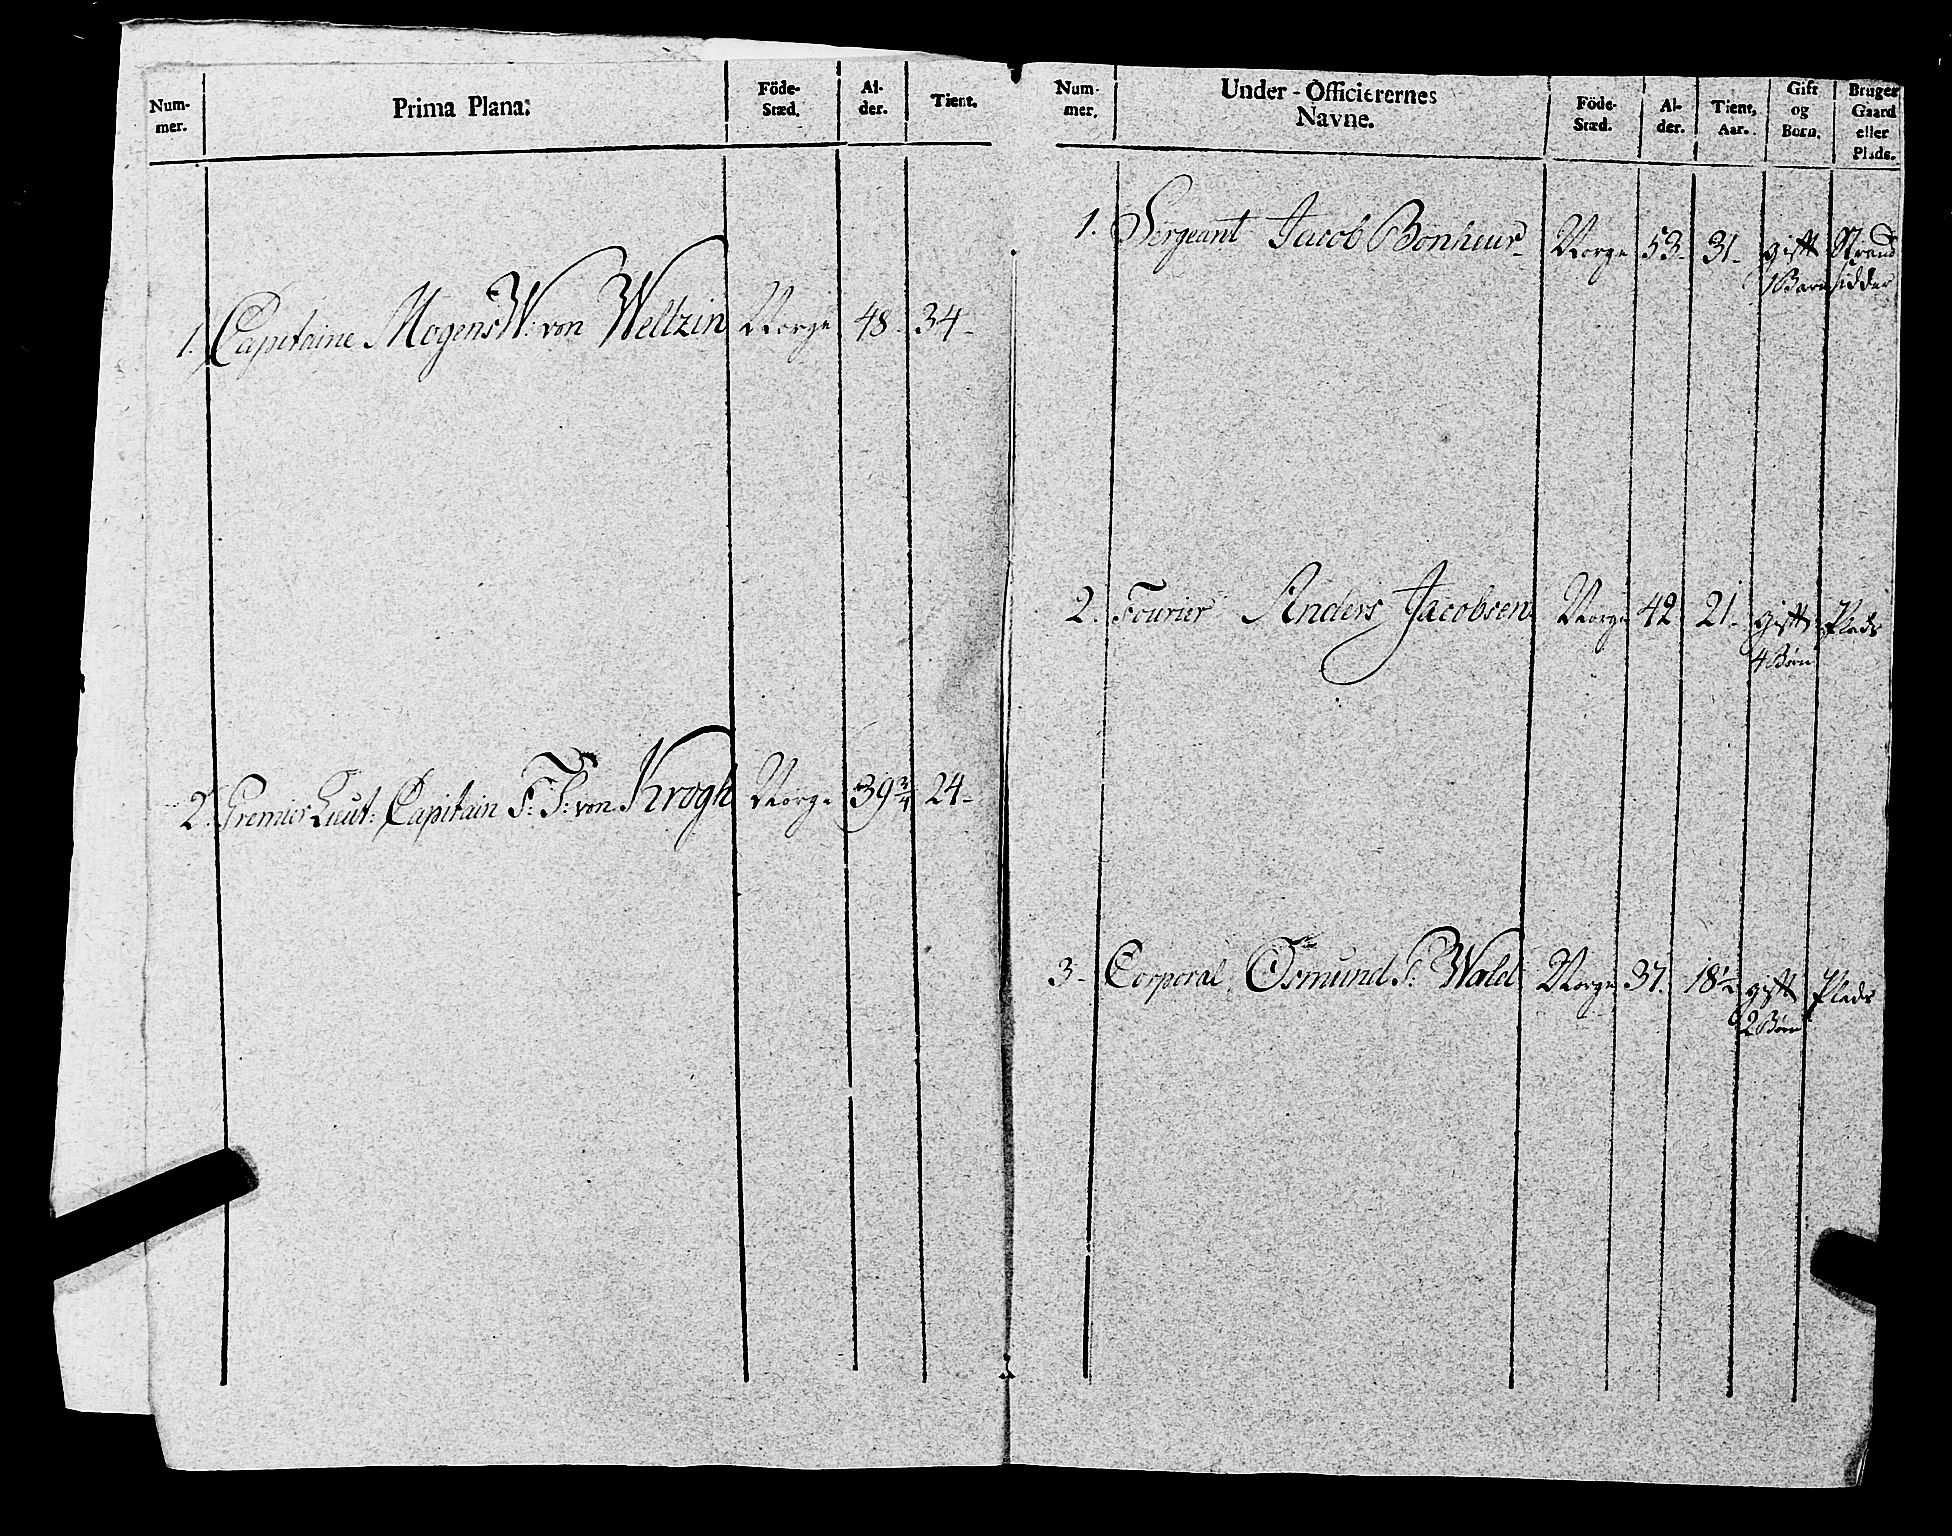 Num-
mer.
Prima Plana:
Föde-
Stæd.
Al-
der.
Tient.
1. Capitaine Mogens W: von Weltzin Norge 48- 34-
2. Premier Lieut: Capitain F: F: von Krogh Norge 39 3/4 24-
Num-
mer.
Under-Officierernes
Navne.
Föde-
Stæd.
Al-
der.
Tient,
Aar.
Gift
og
Born.
Bruger
Gaard
eller
Plads.
1. Sergeant Jacob Bonheur- Norge 53- 31- gift Strand
1 Barn sidder
2. Fourier Anders Jacobsen Norge 42 21- gift Plads
4 Børn
3- Corporal Osmund S: Wald Norge 37. 18 1/2 gift Plads
2 Børn